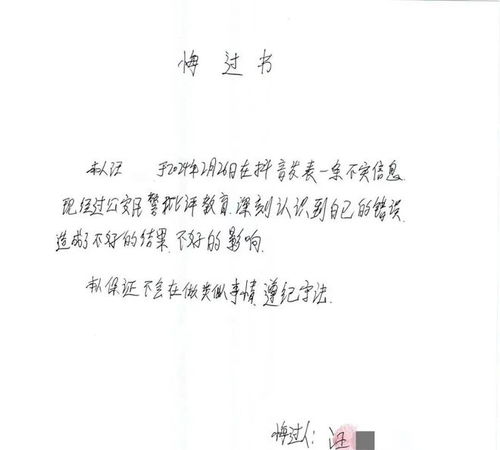 悔过书
本人汪 于2024年2月26日在抖音发表一条不实信息
现经过公安民警批评教育,深刻认识到自己的错误,
造成了不好的结果,不好的影响.
本人保证不会在做类似事情,遵纪守法.
悔过人:汪